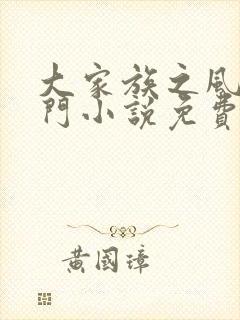 大家族之風
門小說免費
黃國璋